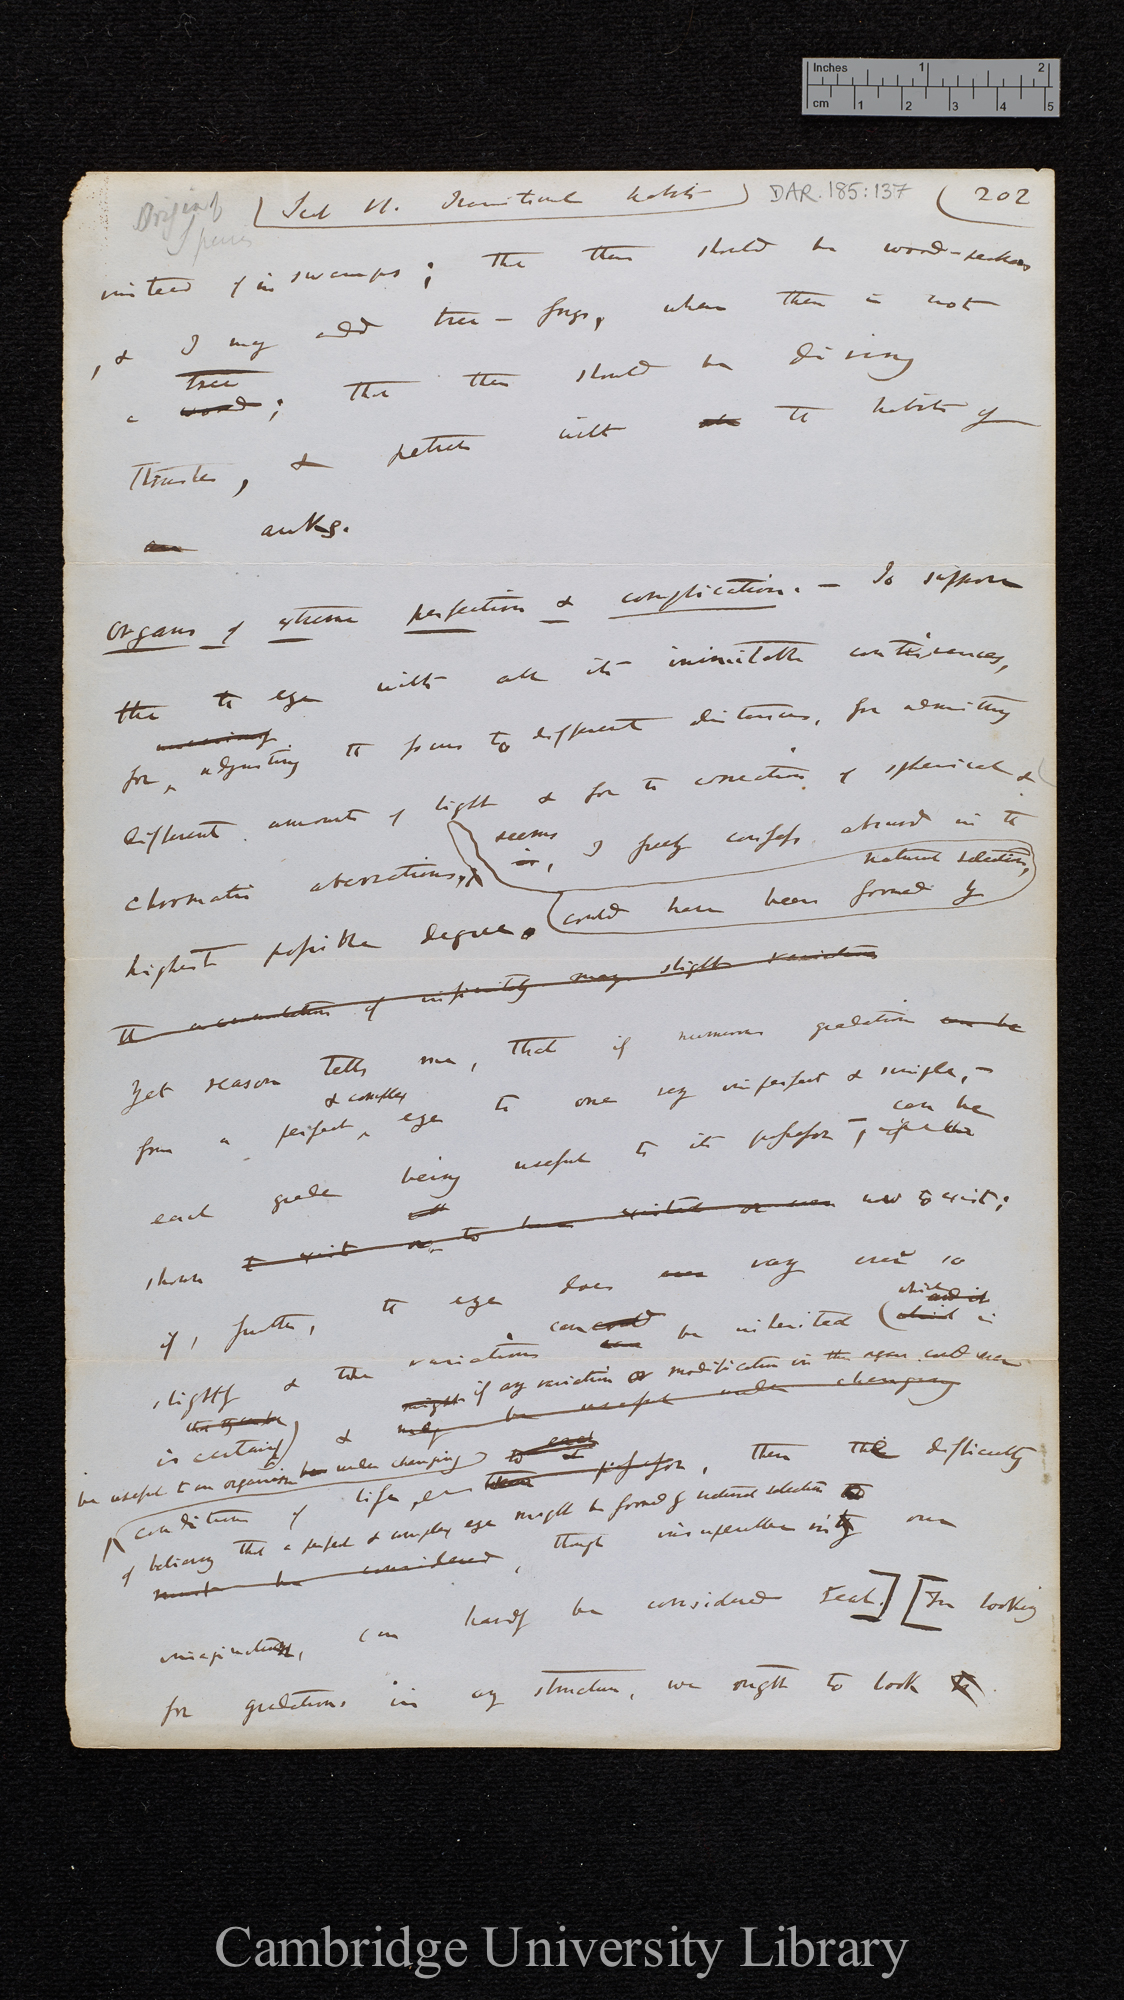 Inches 1 2
cm 1 2 3 4 5
Origin of
Species
Sect VI. Transitional habits DAR.185:137 (202
instead of in swamps; that there should be wood-peckers
, & I may add tree-frogs, where there is not
tree
a wood; that there should be diving
thrushes, & petrels with the habits of
auks.
Organs of extreme perfection & complication. — To suppose
that the eye with all its inimitable contrivances,
for adjusting the focus to different distances, for admitting
different amounts of light & for the correction of spherical &
seems
chromatic aberrations, is, I freely confess, absurd in the
natural selection,
highest possible degree. could have been formed by
the accumulation of infinitely many slight variations
Yet reason tells me, that if numerous gradations can be
& complex
from a perfect eye to one very imperfect & simple, —
can be
each grade being useful to its possessor —,
shown to exist or to have existed or even now to exist;
if, further, the eye does ever vary ever so
which
and it
can could
slightly & the variations be inherited (which is
might if any variation or modification in the organ could ever
is certainly) & may be useful under changing
be useful to an organism under changing
to each
conditions of life, possessor, then the difficulty
of believing that a perfect & complex eye might be formed by natural selection
must be considered, though insuperable by our
imagination, can hardly be considered real.] [In looking
for gradations in any structure, we ought to look to
Cambridge University Library